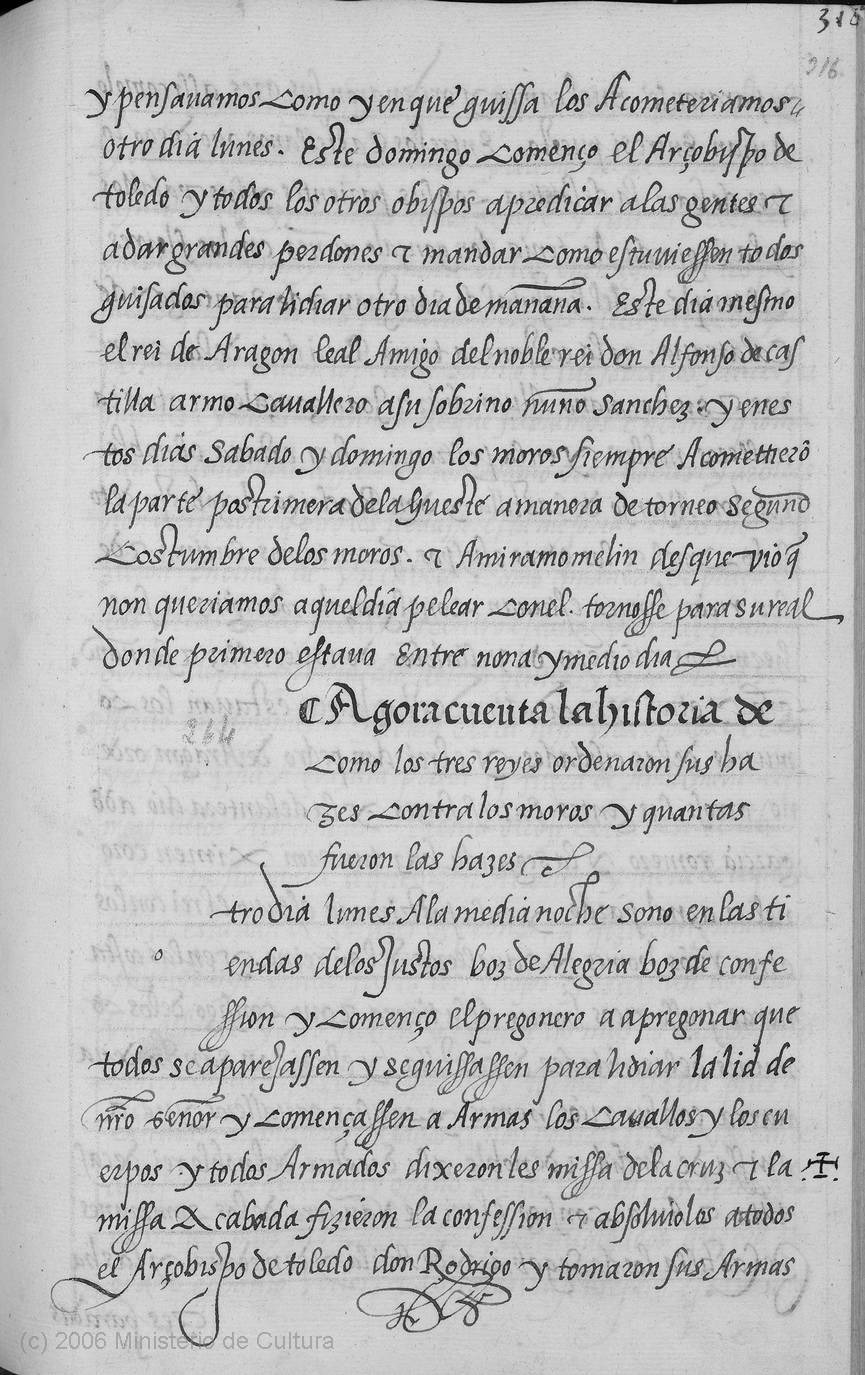 315
316.
y pensauamos como y en que guissa los Acometeriamos
otro dia lunes. Este domingo començo el Arçobispo de
toledo y todos los otros obispos apredicar alas gentes &
adar grandes perdones & mandar como estuuiessen todos
guisados para lidiar otro dia de mañana. Este dia mesmo
el rei de Aragon leal Amigo del noble rei don Alfonso de cas
tilla armo Cauallero asu sobrino nuño Sanchez. y enes
tos dias Sabado y domingo los moros siempre Acometierõ
la parte postrimera dela hueste amanera de torneo Segund
Costumbre delos moros. & Amiramomelin desque vio q̃
non queriamos aquel dia pelear conel. tornosse para su real
donde primero estaua Entre nona y medio dia
Agora cuenta la historia de
264
como los tres reyes ordenaron sus ha
zes contra los moros y quantas
fueron las hazes
tro dia lunes Ala media noche sono en las ti
o endas delos Justos boz de Alegria boz de confe
ssion y començo el pregonero a apregonar que
todos se aparejassen y se guissassen para lidiar la lid de
nr̃o señor y començassen a Armas los Cauallos y los cu
erpos y todos Armados dixeronles missa dela cruz & la
missa Acabada fizieron la confession & absoluiolos atodos
el Arçobispo de toledo don Rodrigo y tomaron sus Armas
(c) 2006 Ministerio de Cultura